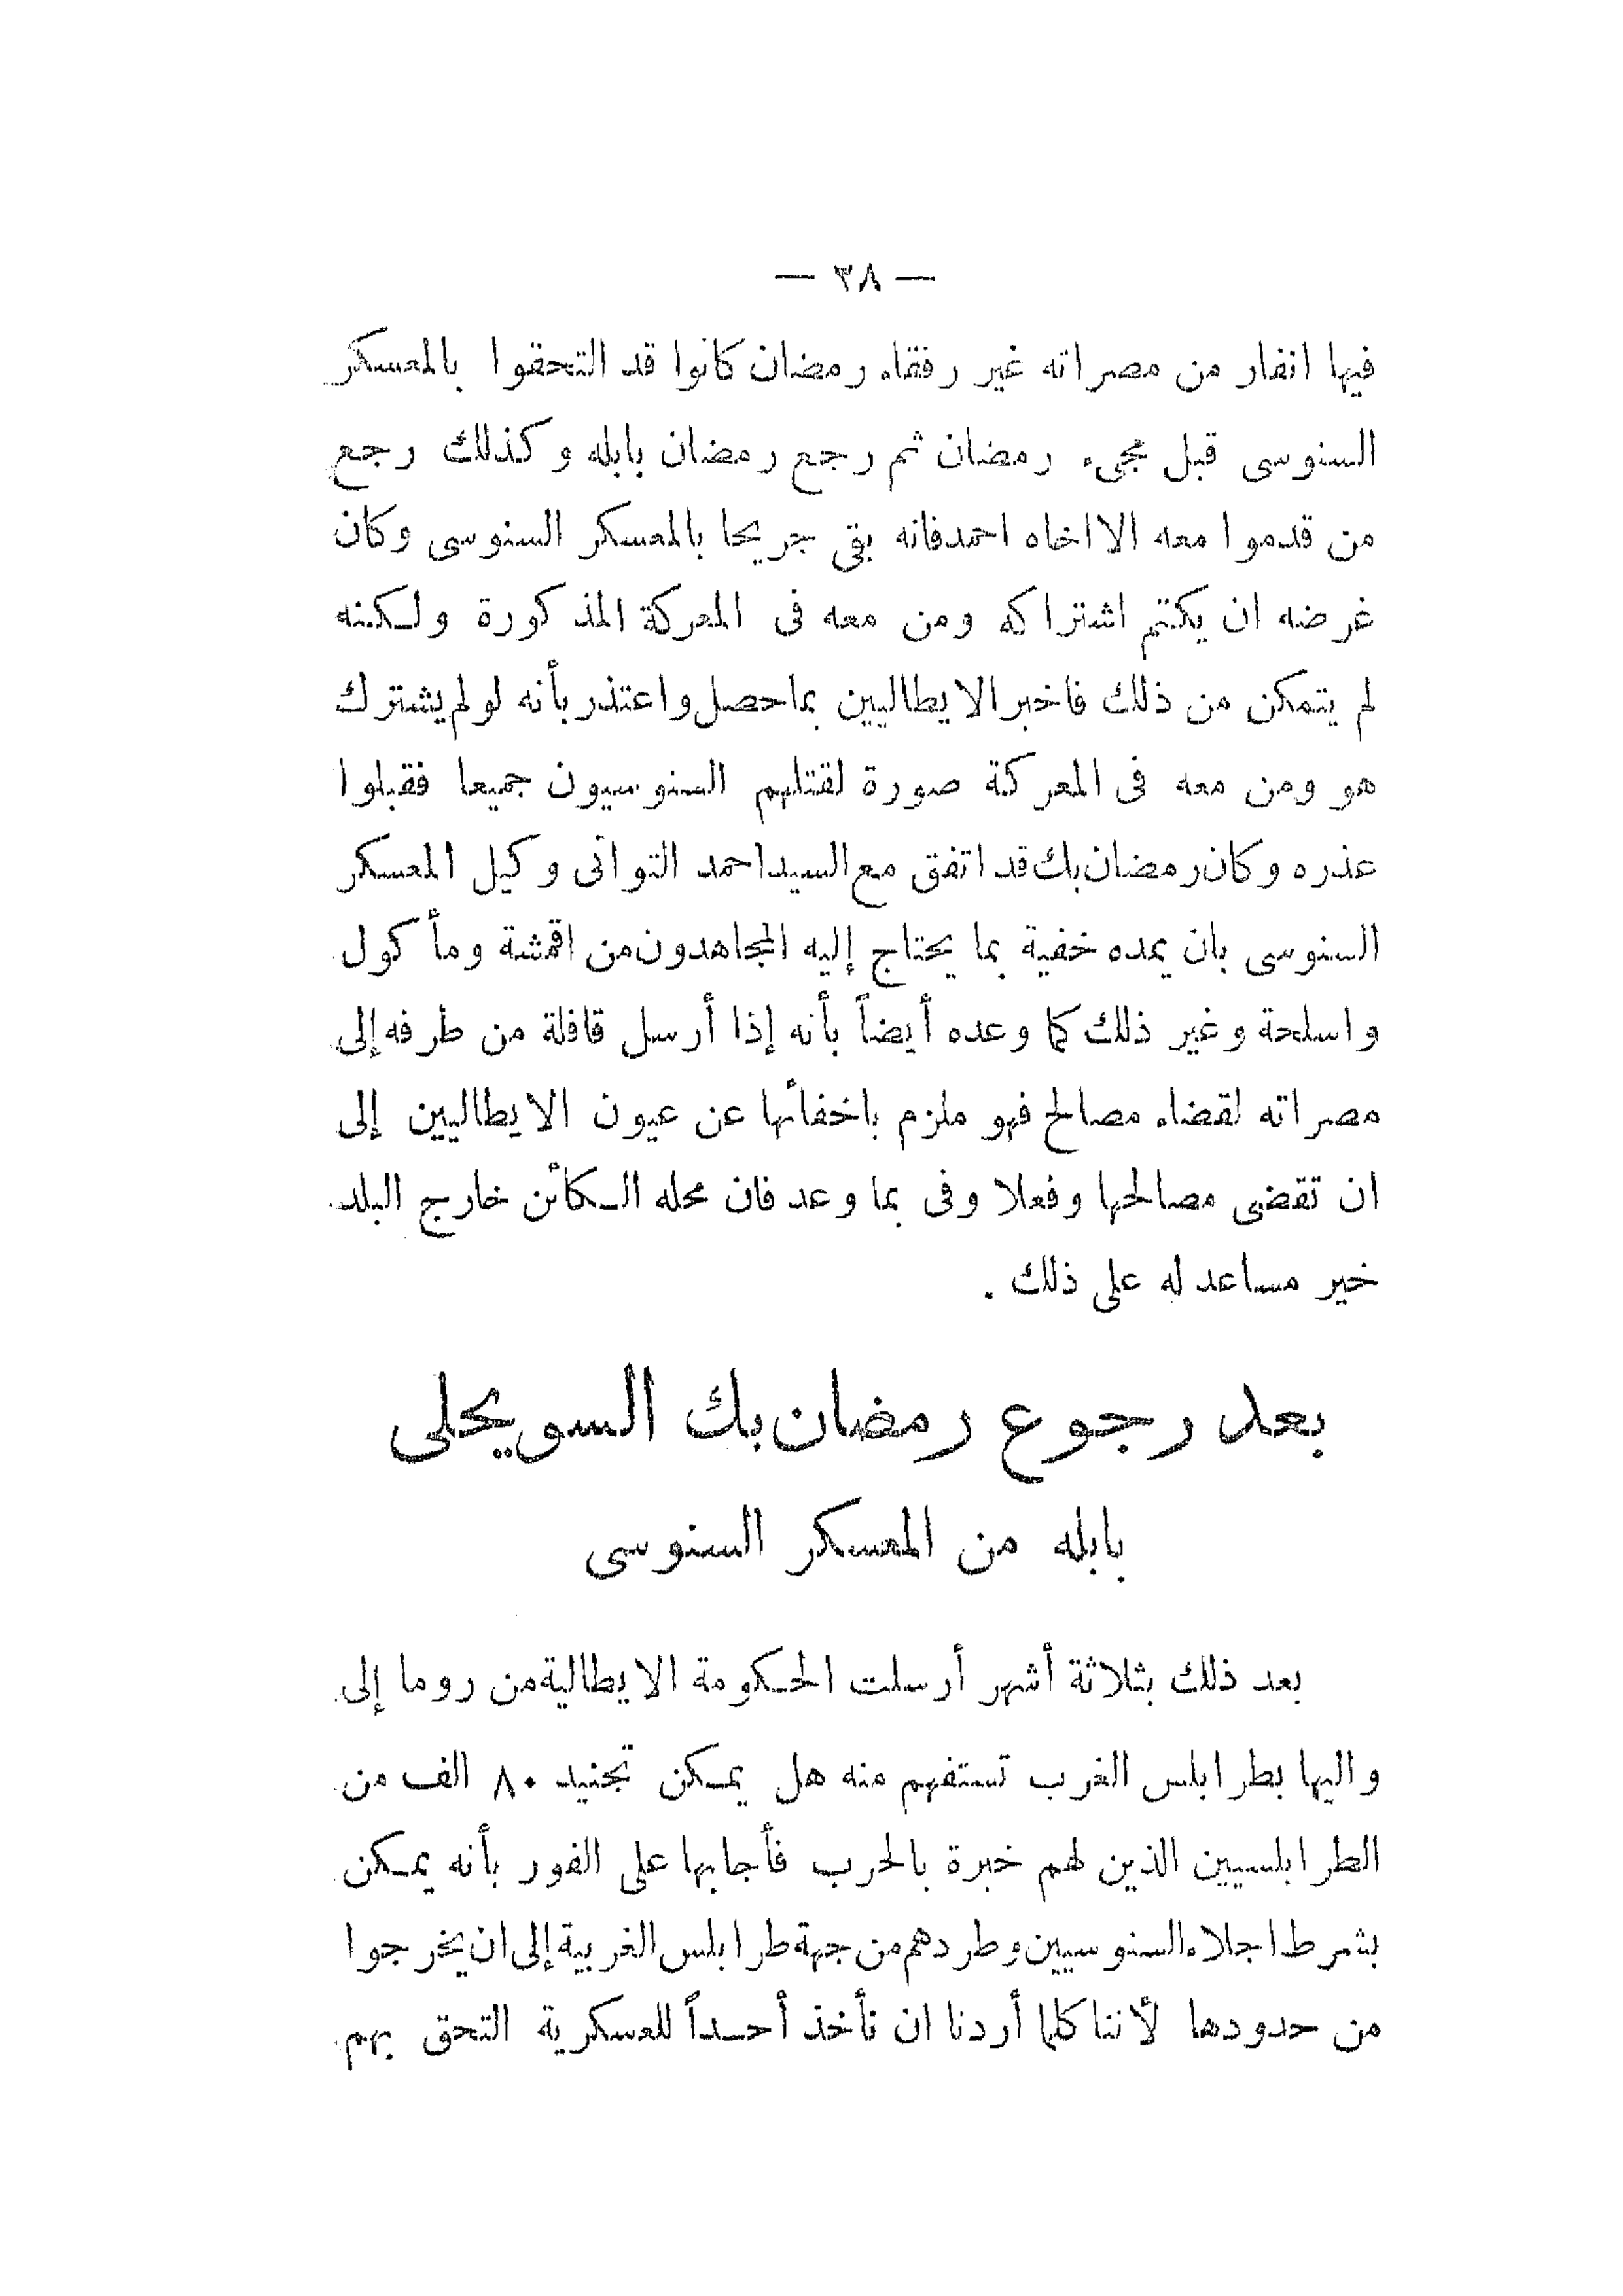 — ٣٨ —
فيها انفار من مصراته غير رفقاء رمضان كانوا قد التحقوا بالمعسكر
السنوسى قبل مجىء رمضان ثم رجع رمضان بابله وكذلك رجع
من قدموا معه الا اخاه احمد فانه بقى جريحا بالمعسكر السنوسى وكان
غرضه ان يكتم اشتراكه ومن معه فى المعركة المذكورة ولكنه
لم يتمكن من ذلك فاخبر الايطاليين بما حصل واعتذر بأنه لو لم يشترك
هو ومن معه فى المعركة صورة لقتلهم السنوسيون جميعا فقبلوا
عذره وكان رمضان بك قد اتفق مع السيد احمد التواتى وكيل المعسكر
السنوسى بان يمده خفية بما يحتاج إليه المجاهدون من اقمشة ومأكول
واسلحة وغير ذلك كما وعده أيضاً بأنه إذا أرسل قافلة من طرفه إلى
مصراته لقضاء مصالح فهو ملزم باخفائها عن عيون الايطاليين إلى
ان تقضى مصالحها وفعلا وفى بما وعد فان محله الكائن خارج البلد
خير مساعد له على ذلك .
بعد رجوع رمضان بك السويحلى
بابله من المعسكر السنوسى
بعد ذلك بثلاثة أشهر أرسلت الحكومة الايطالية من روما إلى
واليها بطرابلس الغرب تستفهم منه هل يمكن تجنيد ٨٠ الف من
الطرابلسيين الذين لهم خبرة بالحرب فأجابها على الفور بأنه يمكن
بشرط اجلاء السنوسيين وطردهم من جهة طرابلس الغربية إلى ان يخرجوا
من حدودها لأننا كلما أردنا ان نأخذ أحداً للعسكرية التحق بهم